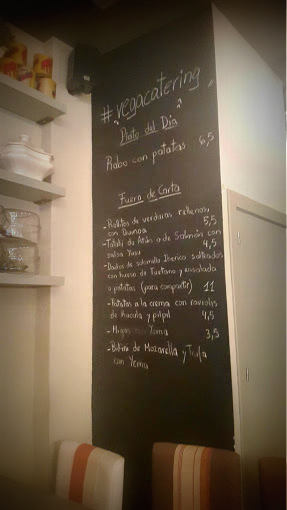 #vegacatering
Plato del Día
Rabo con patatas 6,5
Fuera de Carta
- Rollitos de verduras rellenos
con Quinoa 5,5
- Tataki de Atún o de Salmón con
salsa Yuzu 4,5
- Dados de solomillo Ibérico salteados
con hueso de Tuetano y ensalada
o patatas (para compartir) 11
- Patatas a la crema con raviolis
de Rucula y pilpil 4,5
- Migas con Yema 3,5
- de Mozarella y Trufa
con Yema